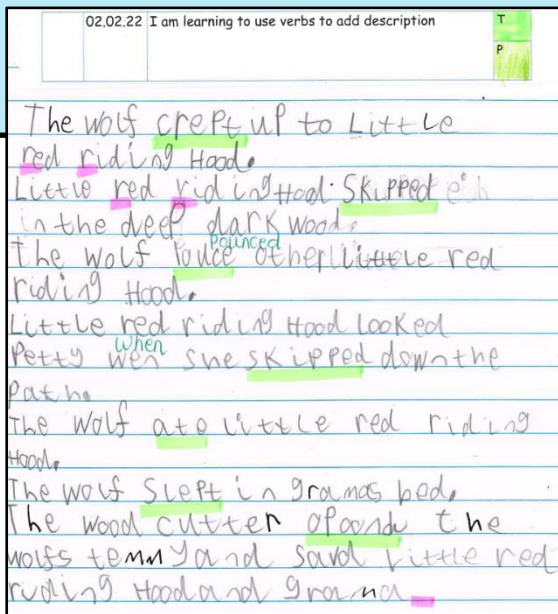 02.02.22 I am learning to use verbs to add description
T
P
The wolf crept up to Little
red riding Hood.
Little red riding Hood. Skipped
in the deep dark wood.
Pounced
the wolf pouce other little red
riding Hood.
Little red riding Hood looked
When
Petty wen she skipped down the
path.
The wolf ate little red riding
Hood.
The wolf Slept in gramas bed.
The wood cutter opoond the
wolfs temmy and savd little red
riding Hood and grama